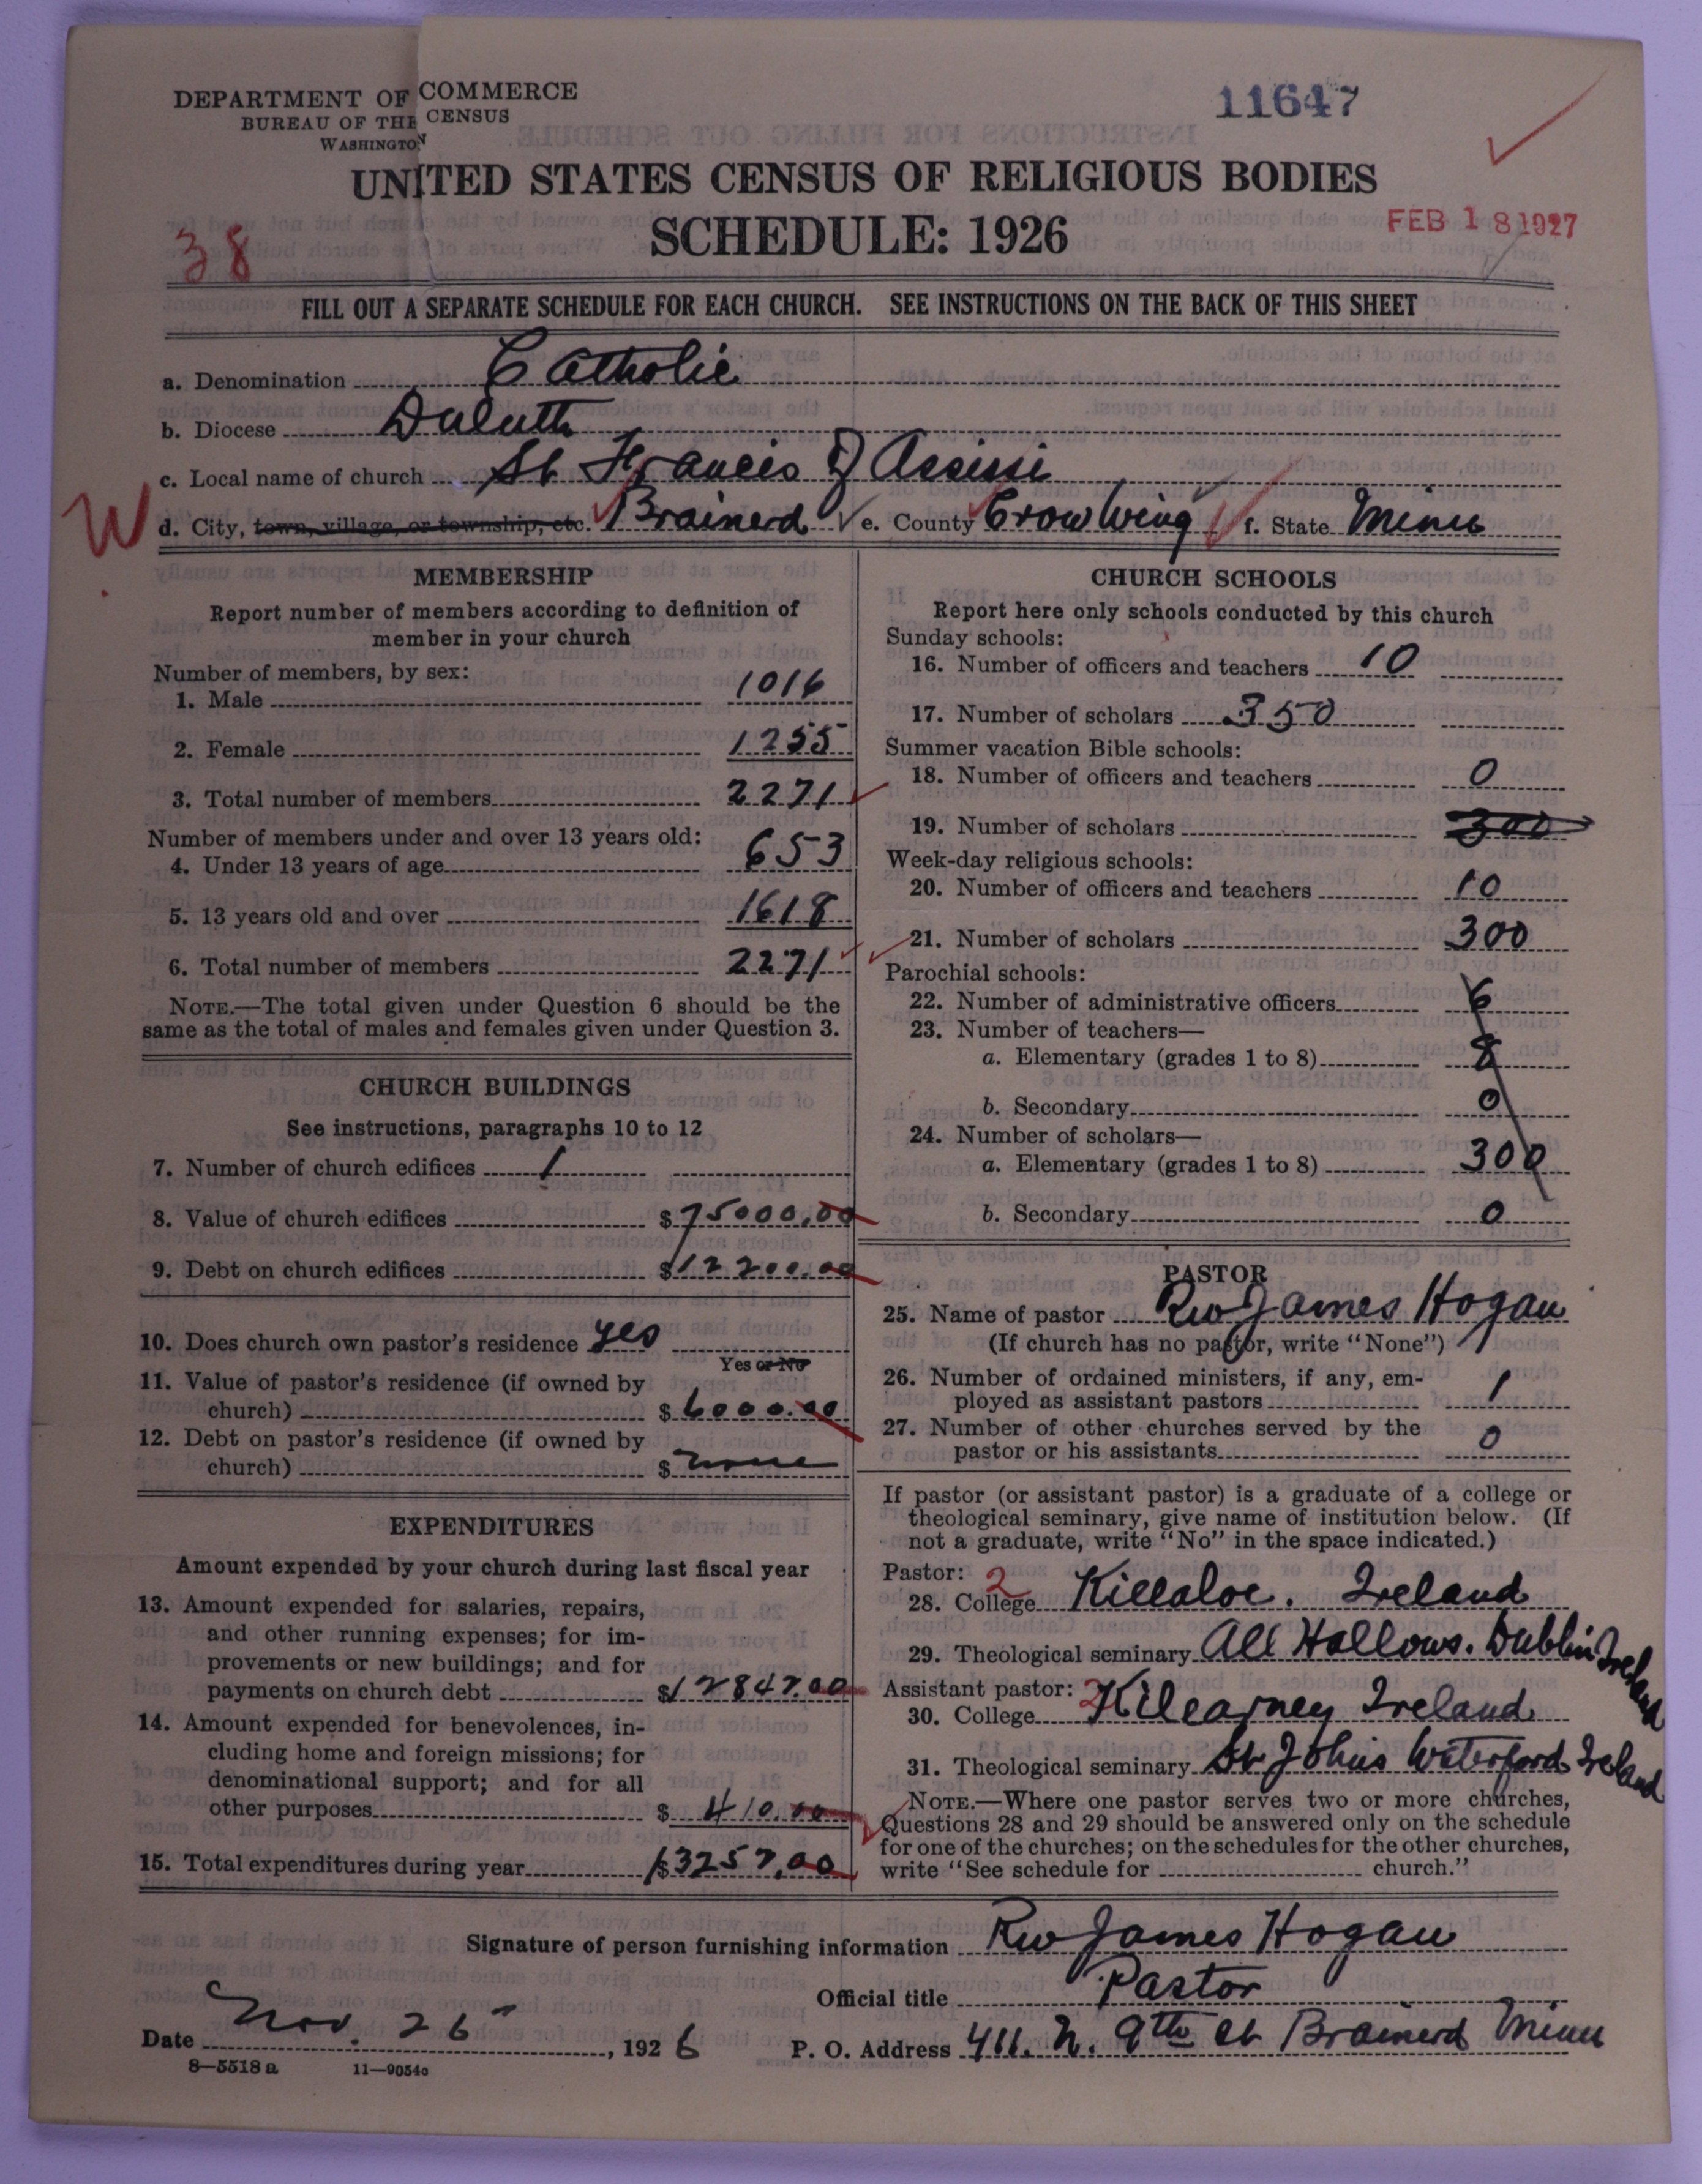 DEPARTMENT OF COMMERCE
BUREAU OF THE CENSUS
WASHINGTON
11647
UNITED STATES CENSUS OF RELIGIOUS BODIES
SCHEDULE: 1926
FEB 18 1927
38
FILL OUT A SEPARATE SCHEDULE FOR EACH CHURCH. SEE INSTRUCTIONS ON THE BACK OF THIS SHEET
a. Denomination Catholic
b. Diocese Duluth
c. Local name of church St Francis of Assisi
W d. City, town, village, or township, etc. Brainerd e. County Crow Wing f. State Minn
MEMBERSHIP
Report number of members according to definition of
member in your church
Number of members, by sex:
1. Male 1016
2. Female 1255
3. Total number of members 2271
Number of members under and over 13 years old:
4. Under 13 years of age 653
5. 13 years old and over 1618
6. Total number of members 2271
NOTE.—The total given under Question 6 should be the
same as the total of males and females given under Question 3.
CHURCH BUILDINGS
See instructions, paragraphs 10 to 12
7. Number of church edifices 1
8. Value of church edifices $75000.00
9. Debt on church edifices $12200.00
10. Does church own pastor's residence yes
Yes or No
11. Value of pastor's residence (if owned by
church) $6000.00
12. Debt on pastor's residence (if owned by
church) $ none
EXPENDITURES
Amount expended by your church during last fiscal year
13. Amount expended for salaries, repairs,
and other running expenses; for im-
provements or new buildings; and for
payments on church debt $12847.00
14. Amount expended for benevolences, in-
cluding home and foreign missions; for
denominational support; and for all
other purposes $ 410.00
15. Total expenditures during year $13257.00
CHURCH SCHOOLS
Report here only schools conducted by this church
Sunday schools:
16. Number of officers and teachers 10
17. Number of scholars 350
Summer vacation Bible schools:
18. Number of officers and teachers 0
19. Number of scholars 300
Week-day religious schools:
20. Number of officers and teachers 10
21. Number of scholars 300
Parochial schools:
22. Number of administrative officers 6
23. Number of teachers—
a. Elementary (grades 1 to 8) 8
b. Secondary 0
24. Number of scholars—
a. Elementary (grades 1 to 8) 300
b. Secondary 0
PASTOR
25. Name of pastor Rev James Hogan
(If church has no pastor, write "None")
26. Number of ordained ministers, if any, em-
ployed as assistant pastors 1
27. Number of other churches served by the
pastor or his assistants 0
If pastor (or assistant pastor) is a graduate of a college or
theological seminary, give name of institution below. (If
not a graduate, write "No" in the space indicated.)
Pastor: 2
28. College Killaloe. Ireland
29. Theological seminary All Hallows. Dublin Ireland
Assistant pastor: 2
30. College Kilearney Ireland
31. Theological seminary St Johns Waterford Ireland
NOTE.—Where one pastor serves two or more churches,
Questions 28 and 29 should be answered only on the schedule
for one of the churches; on the schedules for the other churches,
write "See schedule for church."
Signature of person furnishing information Rev James Hogan
Official title Pastor
Date Nov. 26, 1926
P. O. Address 411. N. 9th St Brainerd Minn
8—5518 a 11—9054a